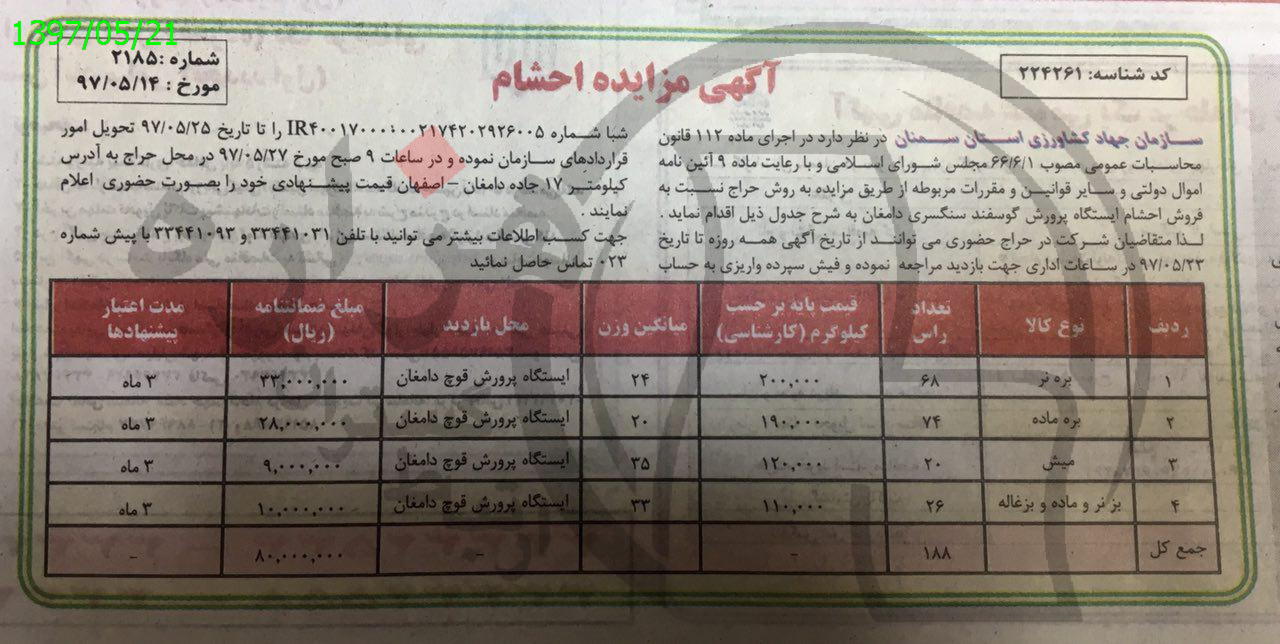 1397/05/21
شماره :۲۱۸۵
مورخ : ۹۷/۰۵/۱۴
آگهی مزایده احشام
کد شناسه: ۲۲۴۲۶۱
سازمان جهاد کشاورزی استان سمنان در نظر دارد در اجرای ماده ۱۱۲ قانون
محاسبات عمومی مصوب ۶۶/۶/۱ مجلس شورای اسلامی و با رعایت ماده ۹ آئین نامه
اموال دولتی و سایر قوانین و مقررات مربوطه از طریق مزایده به روش حراج نسبت به
فروش احشام ایستگاه پرورش گوسفند سنگسری دامغان به شرح جدول ذیل اقدام نماید .
لذا متقاضیان شرکت در حراج حضوری می توانند از تاریخ آگهی همه روزه تا تاریخ
۹۷/۰۵/۲۳ در ساعات اداری جهت بازدید مراجعه نموده و فیش سپرده واریزی به حساب
شبا شماره را تا تاریخ ۹۷/۰۵/۲۵ تحویل امور
قراردادهای سازمان نموده و در ساعات ۹ صبح مورخ ۹۷/۰۵/۲۷ در محل حراج به آدرس
کیلومتر ۱۷ جاده دامغان – اصفهان قیمت پیشنهادی خود را بصورت حضوری اعلام
نمایند .
جهت کسب اطلاعات بیشتر می توانید با تلفن ۳۳۴۴۱۰۳۱ و ۳۳۴۴۱۰۹۳ با پیش شماره
۰۲۳ تماس حاصل نمائید
ردیف نوع کالا تعداد راس قیمت پایه بر حسب کیلوگرم (کارشناسی) میانگین وزن محل بازدید مبلغ ضمانتنامه (ریال) مدت اعتبار پیشنهادها
۱ بره نر ۶۸ ۲۰۰,۰۰۰ ۲۴ ایستگاه پرورش قوچ دامغان ۳۳,۰۰۰,۰۰۰ ۳ ماه
۲ بره ماده ۷۴ ۱۹۰,۰۰۰ ۲۰ ایستگاه پرورش قوچ دامغان ۲۸,۰۰۰,۰۰۰ ۳ ماه
۳ میش ۲۰ ۱۲۰,۰۰۰ ۳۵ ایستگاه پرورش قوچ دامغان ۹,۰۰۰,۰۰۰ ۳ ماه
۴ بز نر و ماده و بزغاله ۲۶ ۱۱۰,۰۰۰ ۳۳ ایستگاه پرورش قوچ دامغان ۱۰,۰۰۰,۰۰۰ ۳ ماه
جمع کل ۱۸۸ – – ۸۰,۰۰۰,۰۰۰ –